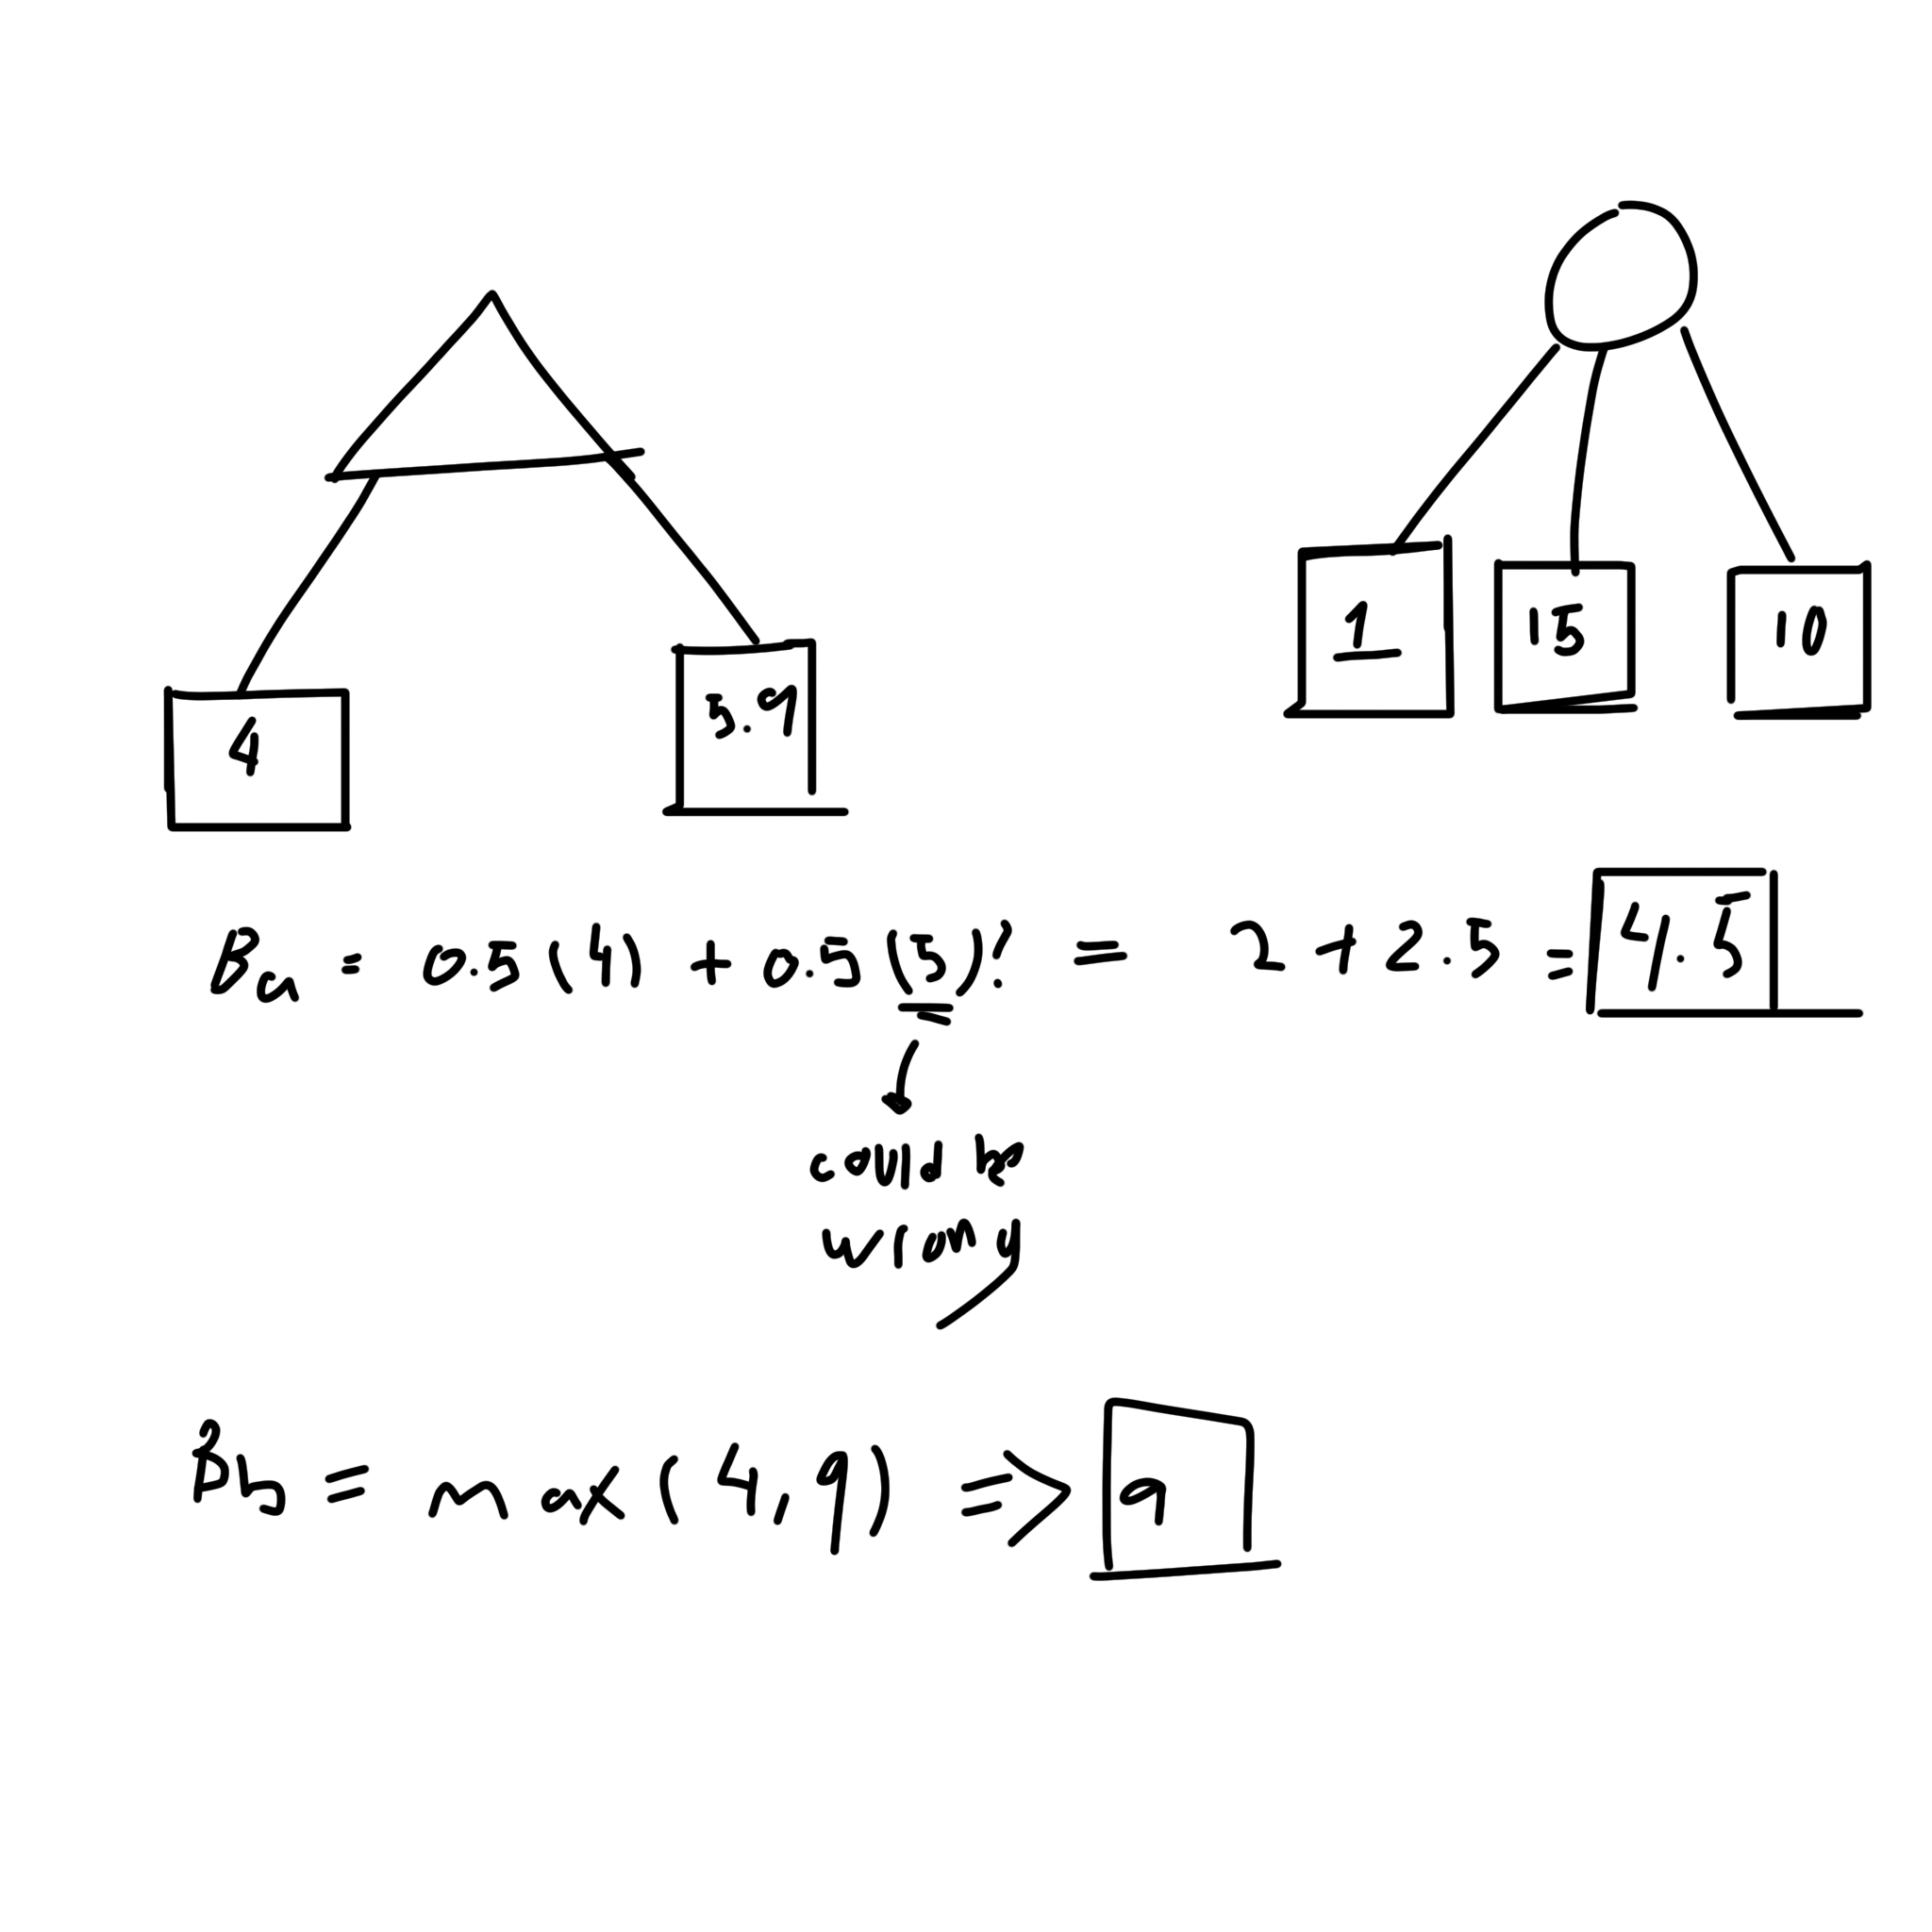 1 15 10
4 5.9
Ba = 0.5(4) + 0.5(5)? = 2+2.5 = 4.5
could be
wrong
Bb = max(4,9) => 9